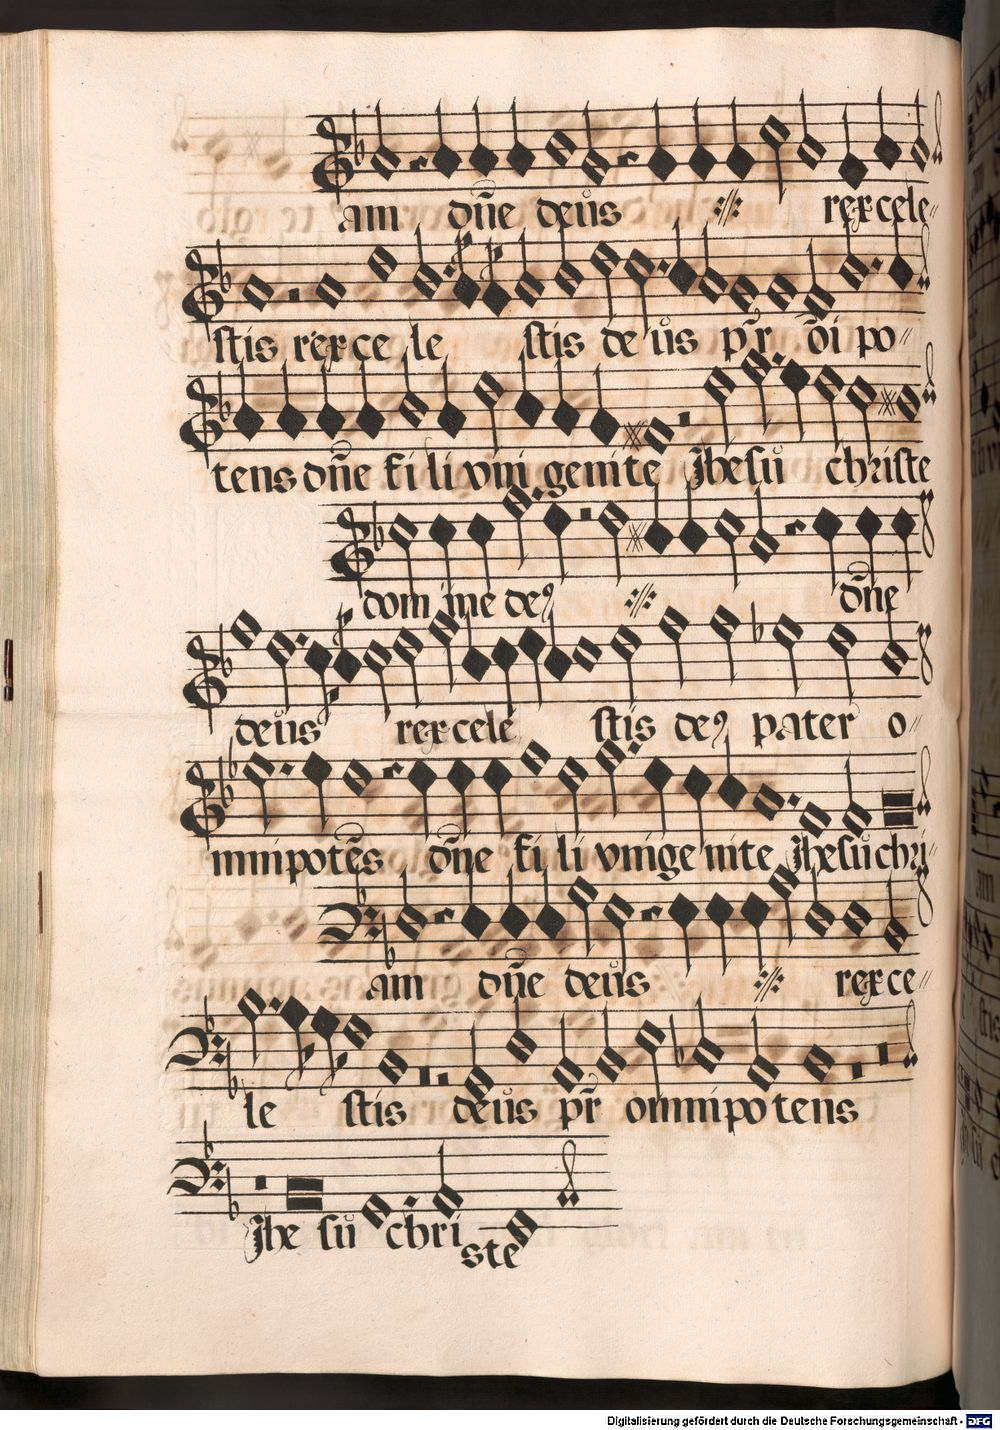 am dn̄e deus ·//· rex cele-
stis rex ce le stis de us pr̄ oī po-
tens dn̄e fi li vni genite Jhesu christe
dom ine de9 ·//· dn̄e
deus rex cele stis de9 pater o-
mnipotēs dn̄e fi li vnige nite Jhesu chri-
am dn̄e deus ·//· rex ce-
le stis deus pr̄ omnipotens
Jhe su chri
ste
Digitalisierung gefördert durch die Deutsche Forschungsgemeinschaft - DFG